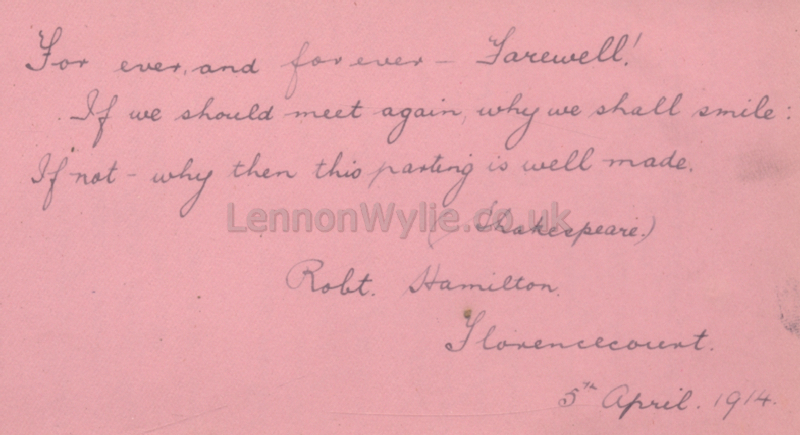 For ever, and for ever – Farewell!
If we should meet again, why we shall smile:
If not – why then this parting is well made.
LennonWylie.co.uk
(Shakespeare.)
Robt. Hamilton.
Florencecourt.
5th April. 1914.